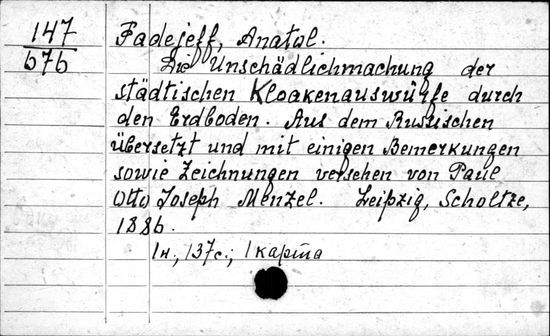 147
676
Fadejeff, Anatol.
Die Unschädlichmachung der
städtischen Kloakenauswürfe durch
den Erdboden. Aus dem Russischen
übersetzt und mit einigen Bemerkungen
sowie Zeichnungen versehen von Paul
Otto Joseph Menzel. Leipzig, Scholtze,
1886.
1н., 137с., 1 карта